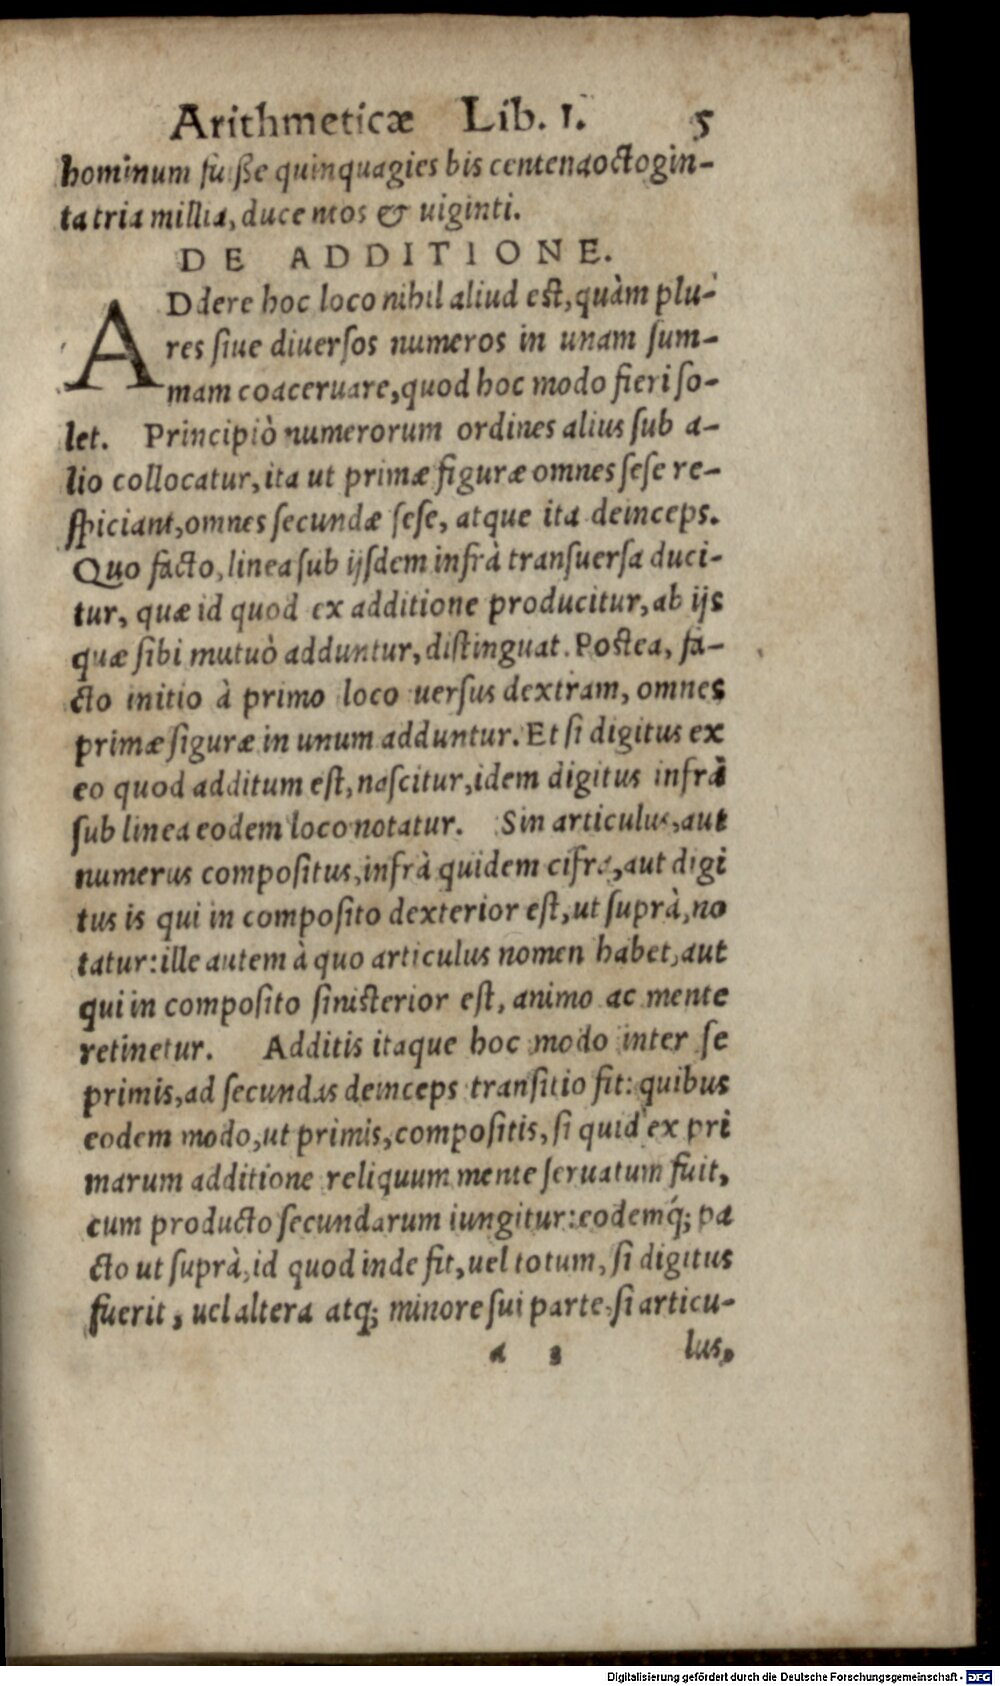 Arithmeticæ Lib. 1. 5
hominum fuiße quinquagies bis centena octogin-
ta tria millia, ducentos & uiginti.
DE ADDITIONE.
ADdere hoc loco nihil aliud est, quàm plu-
res siue diuersos numeros in unam sum-
mam coaceruare, quod hoc modo fieri so-
let. Principiò numerorum ordines alius sub a-
lio collocatur, ita ut primæ figuræ omnes sese re-
spiciant, omnes secundæ sese, atque ita deinceps.
Quo facto, linea sub ijsdem infrà transuersa duci-
tur, quæ id quod ex additione producitur, ab ijs
quæ sibi mutuò adduntur, distinguat. Postea, fa-
cto initio à primo loco uersus dextram, omnes
primæ figuræ in unum adduntur. Et si digitus ex
eo quod additum est, nascitur, idem digitus infrà
sub linea eodem loco notatur. Sin articulus, aut
numerus compositus, infrà quidem cifra, aut digi
tus is qui in composito dexterior est, ut suprà, no
tatur: ille autem à quo articulus nomen habet, aut
qui in composito sinisterior est, animo ac mente
retinetur. Additis itaque hoc modo inter se
primis, ad secundas deinceps transitio fit: quibus
eodem modo, ut primis, compositis, si quid ex pri
marum additione reliquum mente seruatum fuit,
cum producto secundarum iungitur: eodemq́; pa
cto ut suprà, id quod inde fit, uel totum, si digitus
fuerit, uel altera atq; minore sui parte, si articu-
a 3 lus,
Digitalisierung gefördert durch die Deutsche Forschungsgemeinschaft - DFG